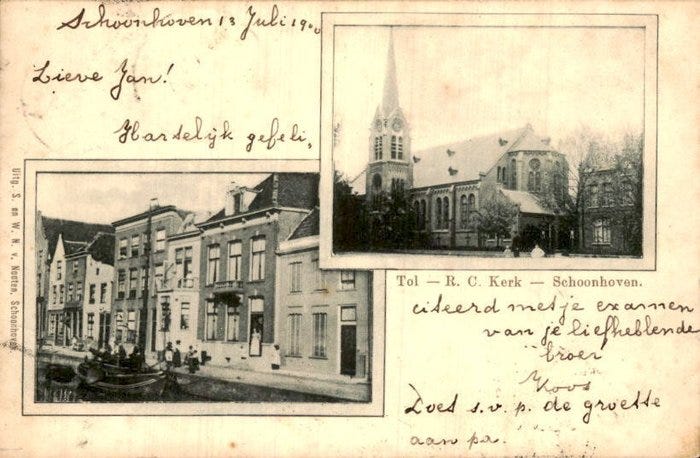 Schoonhoven 13 Juli 190
Lieve Jan!
Hartelijk gefeli,
Tol — R. C. Kerk — Schoonhoven.
citeerd met je examen
van je liefheblende
broer
Koos
Does s.v.p. de groette
aan pa.
Uitg. S. en W. N. v. Nooten, Schoonhoven